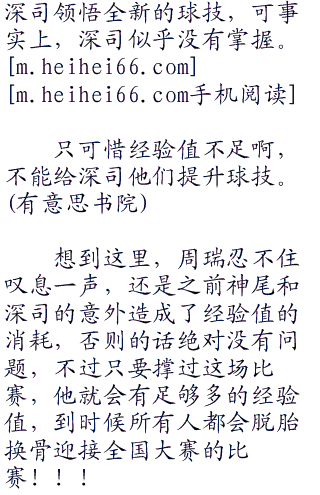 深司领悟全新的球技，可事
实上，深司似乎没有掌握。
[m.heihei66.com]
[m.heihei66.com手机阅读]
只可惜经验值不足啊，
不能给深司他们提升球技。
(有意思书院)
想到这里，周瑞忍不住
叹息一声，还是之前神尾和
深司的意外造成了经验值的
消耗，否则的话绝对没有问
题，不过只要撑过这场比
赛，他就会有足够多的经验
值，到时候所有人都会脱胎
换骨迎接全国大赛的比
赛！！！